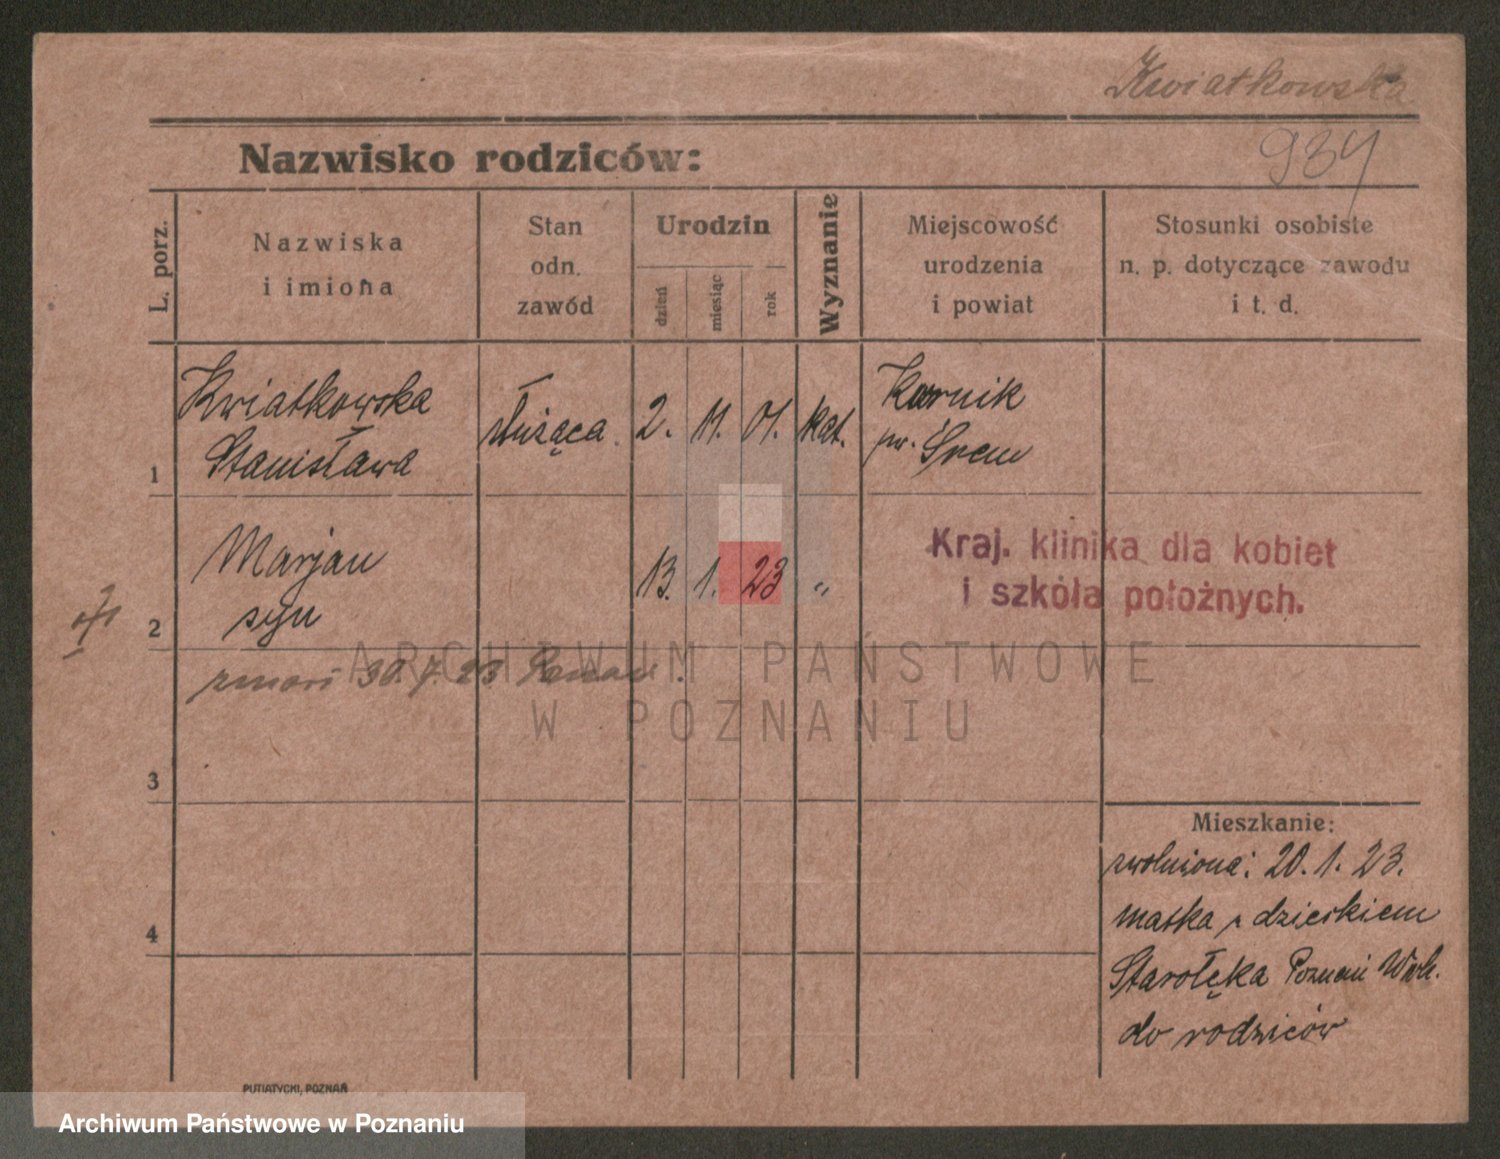 Kwiatkowska
934
Nazwisko rodziców:
L. porz.
Nazwiska
i imiona
Stan
odn.
zawód
Urodzin
dzień
miesiąc
rok
Wyznanie
Miejscowość
urodzenia
i powiat
Stosunki osobiste
n. p. dotyczące zawodu
i t. d.
1
Kwiatkowska
Stanisława
służąca.
2. 11. 01.
kat.
Kurnik
pw. Śrem
2
Marjan
syn
13. 1. 23
"
Kraj. klinika dla kobiet
i szkoła położnych.
zmarł 30.7.23 Poznań.
ARCHIWUM PAŃSTWOWE
W POZNANIU
3
4
Mieszkanie:
zwolniona: 20. 1. 23.
matka z dzieckiem
Starołęka Poznań
do rodziców
PUTIATYCKI, POZNAŃ
Archiwum Państwowe w Poznaniu